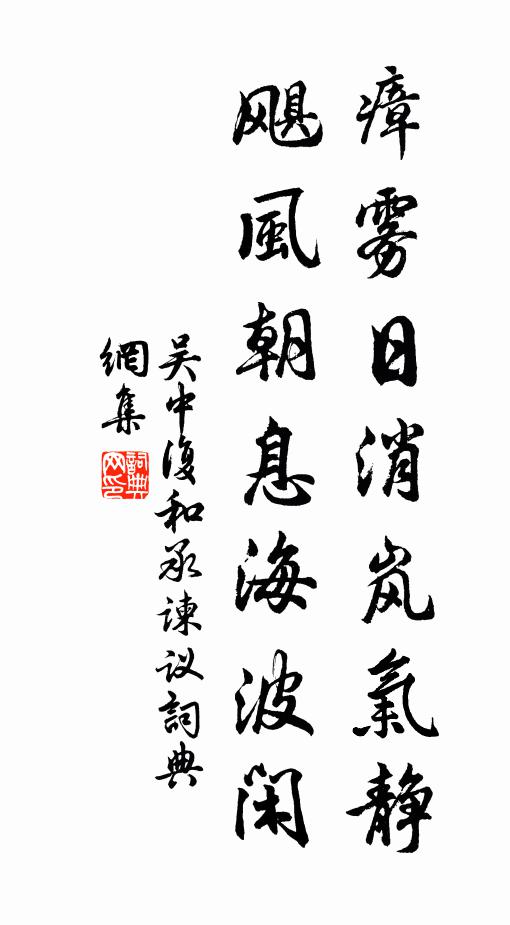 瘴雾日消岚氣静
飓風朝息海波闲
吴中復和承谏议詞典
網集
詞典
网印